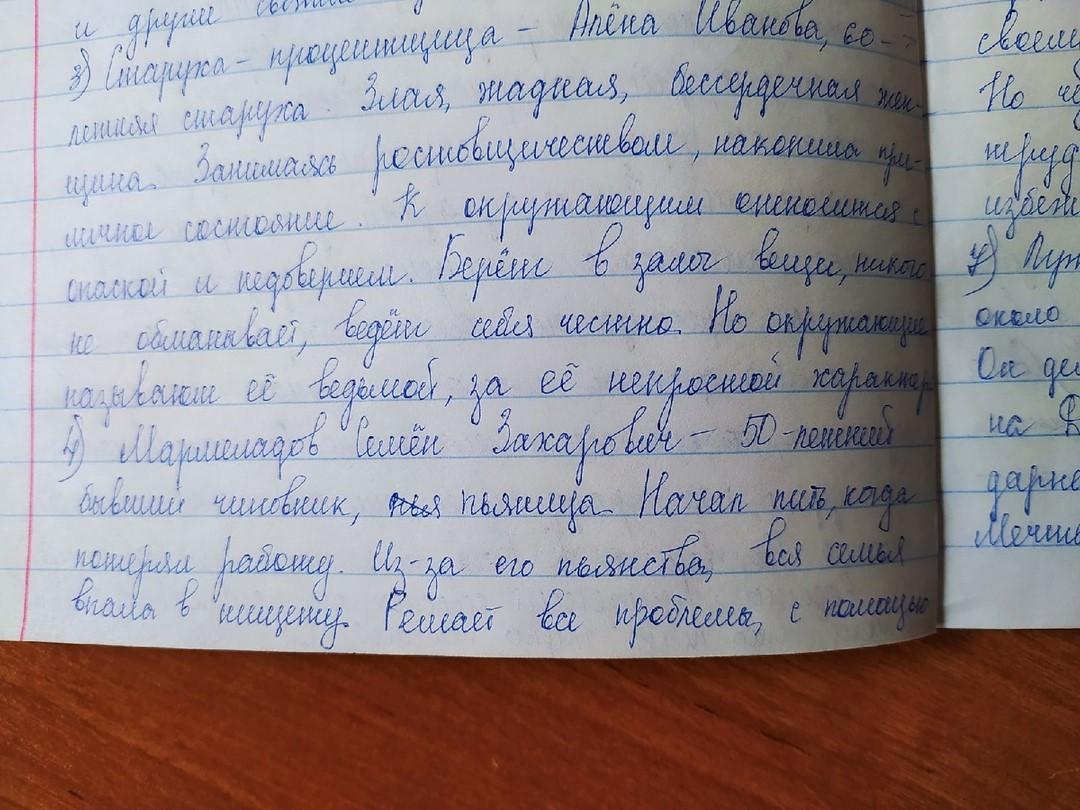 и другие
3) Старуха - процентщица - Алёна Иванова, 60-
летняя старуха. Злая, жадная, бессердечная жен-
щина. Занимаясь ростовщичеством, накопила при-
личное состояние. К окружающим относится с
опаской и недоверием. Берёт в залог вещи, никого
не обманывает, ведёт себя честно. Но окружающие
называют её ведьмой, за её непростой характер
4) Мармеладов Семён Захарович - 50-летний
бывший чиновник, пьяница. Начал пить, когда
потерял работу. Из-за его пьянства, вся семья
впала в нищету. Решает все проблемы, с помощью
своем
Но
избеж
7)
около
Он
на
Мечт